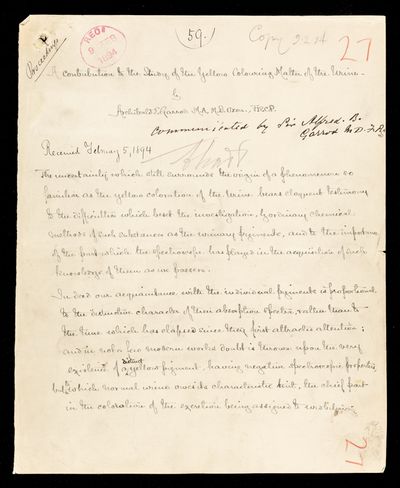 Proceedings
RECD
9 FEB
1894
(59.)
Copy
27
A contribution to the Study of the Yellow Colouring Matter of the Urine.
by
Archibald E. Garrod M.A. M.D. Oxon., F.R.C.P.
Communicated by Sir Alfred B.
Garrod M.D. F.R.S
Received February 5, 1894
The uncertainty which still surrounds the origin of a phenomenon so
familiar as the yellow coloration of the Urine bears eloquent testimony
to the difficulties which beset the investigation, by ordinary chemical
methods of such substances as the urinary pigments, and to the importance
of the part which the spectroscope has played in the acquisition of such
knowledge of them as we possess.
Indeed our acquaintance with the individual pigments is proportional
to the distinctive character of their absorption spectra, rather than to
the time which has elapsed since they first attracted attention;
and in not a few modern works doubt is thrown upon the very
existence of a distinct yellow pigment, having negative spectroscopic properties,
but to which normal urine owes its characteristic tint, the chief part
in the coloration of the excretion being assigned to urobilin
27